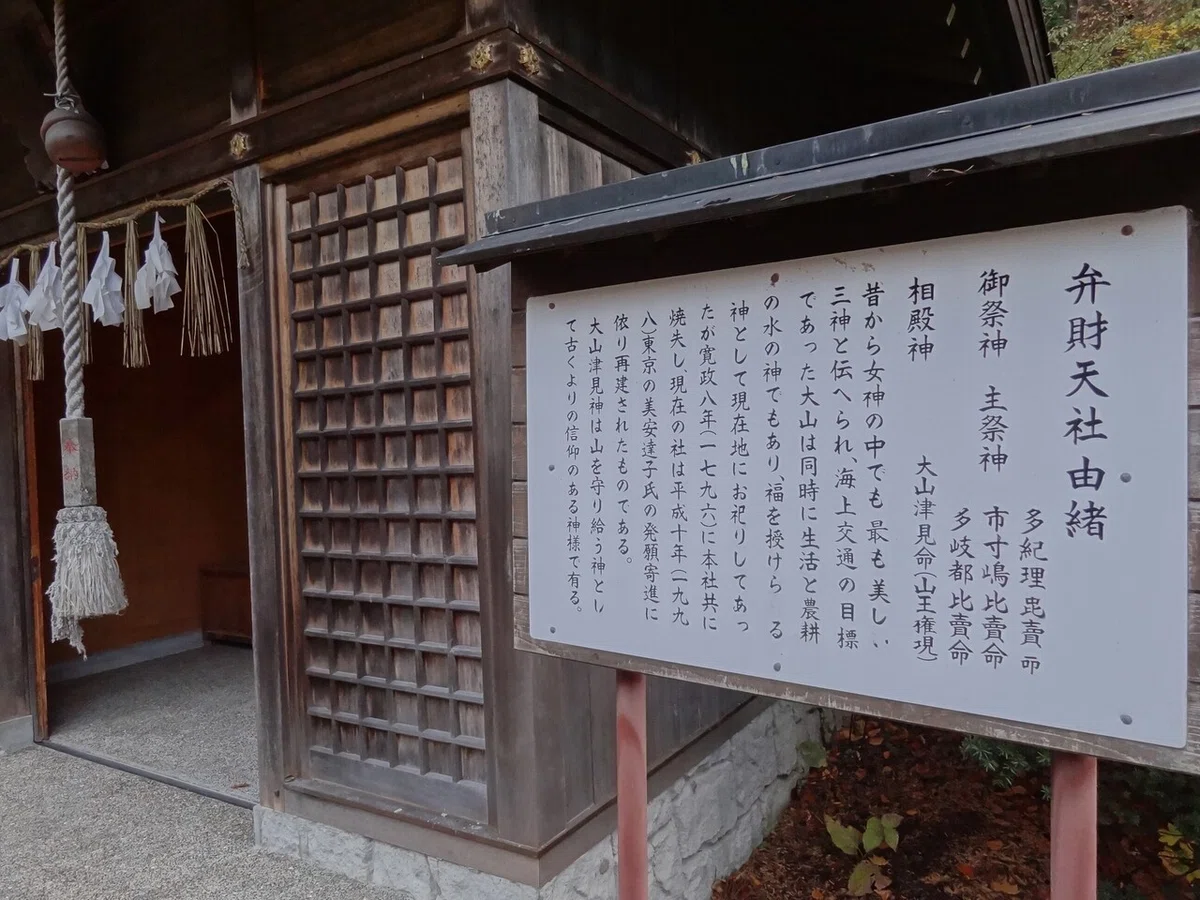 弁財天社由緒
多紀理毘賣命
御祭神 主祭神 市寸嶋比賣命
多岐都比賣命
相殿神 大山津見命(山王権現)
昔から女神の中でも最も美しい
三神と伝へられ、海上交通の目標
であった大山は同時に生活と農耕
の水の神でもあり、福を授けらる
神として現在地にお祀りしてあっ
たが寛政八年(一七九六)に本社共に
焼失し、現在の社は平成十年(一九九
八)東京の美安達子氏の発願寄進に
依り再建されたものである。
大山津見神は山を守り給う神とし
て古くよりの信仰のある神様で有る。
奉納